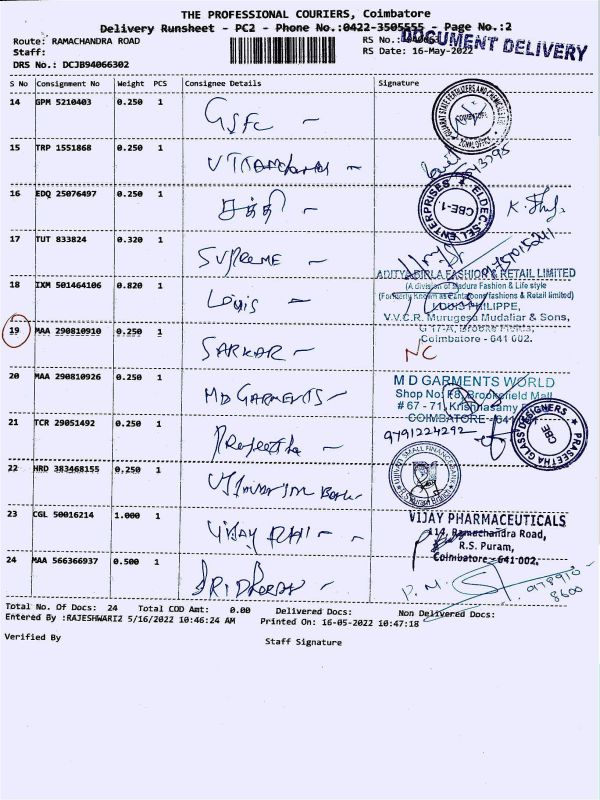 THE PROFESSIONAL COURIERS, Coimbatore
Delivery Runsheet - PC2 - Phone No.:0422-3505555 - Page No.:2
Route: RAMACHANDRA ROAD
RS No.:
DOCUMENT DELIVERY
Staff:
RS Date: 16-May-2022
DRS No.: DCJB94066302
S No Consignment No Weight PCS Consignee Details Signature
14 GPM 5210403 0.250 1 GSFC -
GUJARAT STATE FERTILIZERS AND CHEMICALS
COIMBATORE
ZONAL OFFICE
15 TRP 1551868 0.250 1
16 EDQ 25076497 0.250 1 சக்தி -
ELDEC SEL ENTERPRISES
CBE-1
17 TUT 833824 0.320 1 SUPREME -
18 IXM 501464106 0.820 1 Louis -
ADITYA BIRLA FASHION & RETAIL LIMITED
(A division of Madura Fashion & Life style
(Formerly known as pantaloons fashions & Retail limited)
LOUIS PHILIPPE,
V.V.C.R. Murugesa Mudaliar & Sons,
Coimbatore - 641 002.
19 MAA 290810910 0.250 1 SARKAR - NC
20 MAA 290810926 0.250 1 MD GARMENTS -
M D GARMENTS WORLD
Shop No: F8, Brookefield Mall
# 67 - 71, Krishnasamy
COIMBATORE - 641
21 TCR 29051492 0.250 1 Praseetha -
9791224292
PRASEETHA GLASS DESIGNERS
CBE
22 HRD 383468155 0.250 1
UJJIVAN SMALL FINANCE BANK
23 CGL 50016214 1.000 1 VIJAY PHA -
VIJAY PHARMACEUTICALS
114, Ramachandra Road,
R.S. Puram,
Coimbatore - 641 002.
24 MAA 566366937 0.500 1
P.M.
Total No. Of Docs: 24 Total COD Amt: 0.00 Delivered Docs: Non Delivered Docs:
Entered By :RAJESHWARI2 5/16/2022 10:46:24 AM Printed On: 16-05-2022 10:47:18
Verified By
Staff Signature